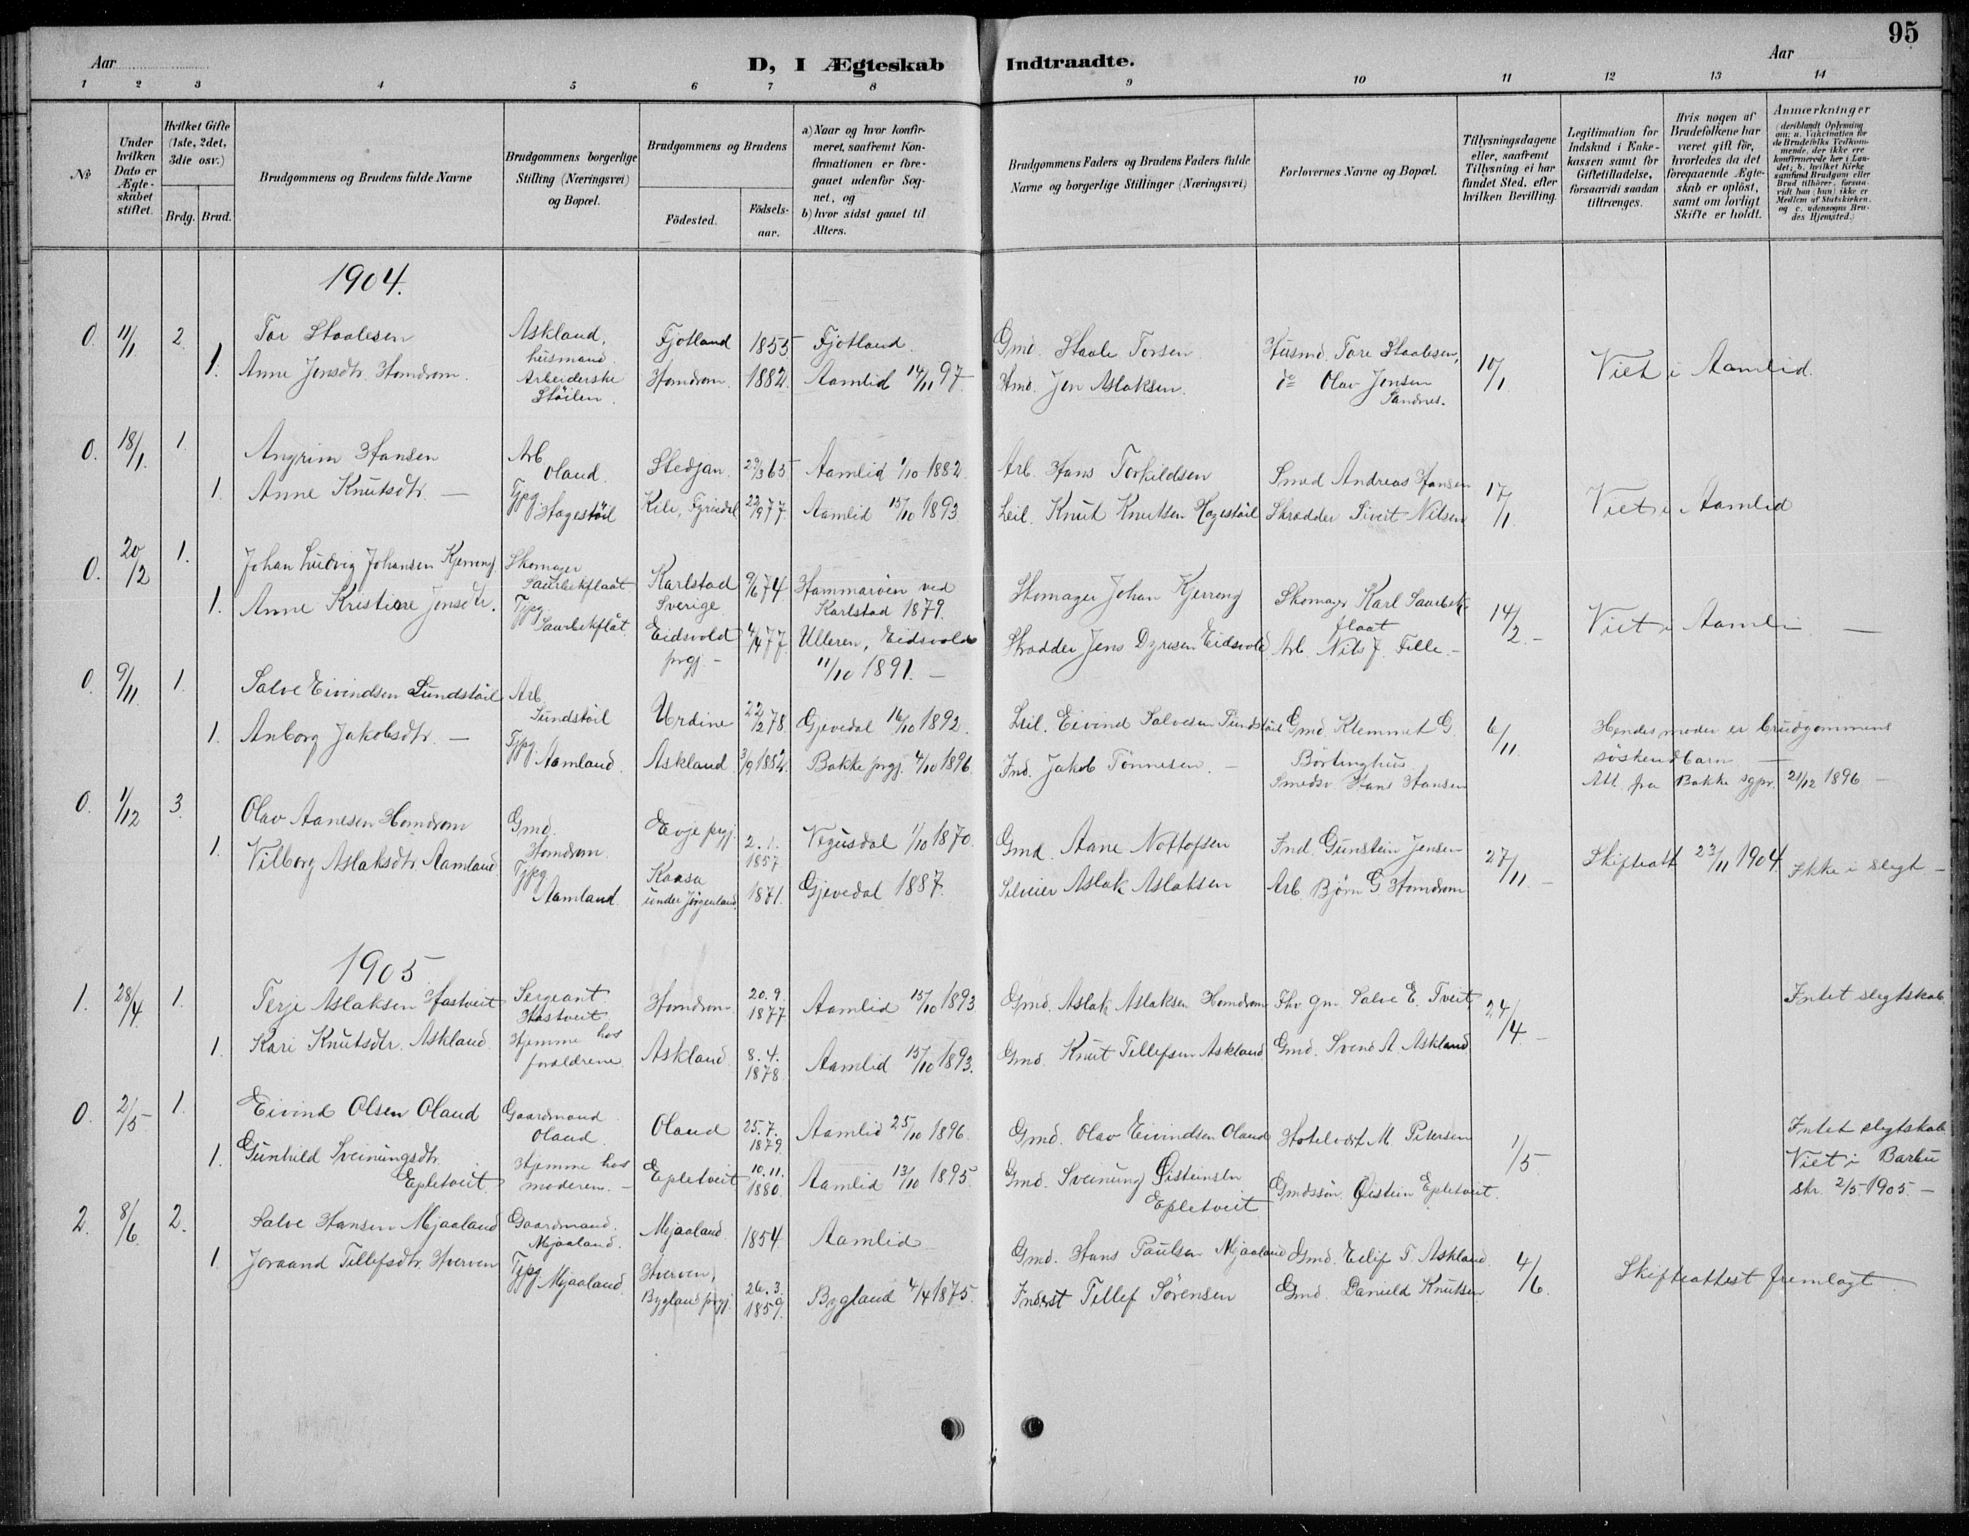 95
Aar
D, I Ægteskab Indtraadte.
Aar
1 2 3 4 5 6 7 8 9 10 11 12 13 14
No
Under hvilken Dato er Ægteskabet stiftet.
Hvilket Gifte (1ste, 2det, 3die osv.)
Brdg. Brud.
Brudgommens og Brudens fulde Navne
Brudgommens borgerlige Stilling (Næringsvei) og Bopæl.
Brudgommens og Brudens
Födested.
Födselsaar.
a) Naar og hvor konfirmeret, saafremt Konfirmationen er foregaaet udenfor Sognet, og
b) hvor sidst gaaet til Alters.
Brudgommens Faders og Brudens Faders fulde Navne og borgerlige Stillinger (Næringsvei)
Forlovernes Navne og Bopæl.
Tillysningsdagene eller, saafremt Tillysning ei har fundet Sted, efter hvilken Bevilling.
Legitimation for Indskud i Enkekassen samt for Giftetilladelse, forsaavidt saadan tiltrænges.
Hvis nogen af Brudefolkene har været gift før, hvorledes da det foregaaende Ægteskab er opløst, samt om lovligt Skifte er holdt.
Anmærkninger (deriblandt Oplysning om: a. Vakcination for de Brudefolks Vedkommende, der ikke ere konfirmerede her i Landet, b. hvilket Kirkesamfund Brudgom eller Brud tilhører, forsaavidt han (hun) ikke er Medlem af Statskirken, og c. udensogns Brudes Hjemsted.)
1904.
0. 11/1 2. Tor Staalesen Askland, husmand. Fjotland 1855 Fjotland. Gmd. Staale Torsen. Husmd. Tore Staalesen, 10/1 Viet i Aamlid.
1. Anne Jensdtr. Homdrom. Arbeiderske Støilen. Homdrom. 1882. Aamlid 14/11 97. Hmd. Jen Aslaksen. do Olav Jensen Sandnes.
0. 18/1. 1. Angrim Hansen Arb. Oland. Stedjan. 29/3 65 Aamlid 1/10 1882. Arb. Hans Torkildsen Smed Andreas Hansen 17/1. Viet i Aamlid
1. Anne Knutsdtr. — Tjpg. Hagestöil Kile, Fyrisdal 22/9 77. Aamlid 15/10 1893. Leil. Knut Knutsen Hagestöil Skradder Sivert Nilsen
0. 20/2 1. Johan Ludvig Johansen Kjerreng Skomager Saurbekflaat. Karlstad Sverige 9/6 74. Hammaröen ved Karlstad 1879. Skomager Johan Kjerreng Skomager Karl Saurbekflaat 14/2. — Viet i Aamli —
1. Anne Kristine Jensdtr. Tjpg. Saurbekflåt. Eidsvold prgj. — 4/4 77. Ulleren, Eidsvold 11/10 1891. — Skradder Jens Dyresen Eidsvold Arb. Nils J. Felle. —
0. 9/11. 1. Salve Eivindsen Lundstöil Arb. Lundstöil Urdine 22/2 78. Gjevedal 16/10 1892. Leil. Eivind Salvesen Lundstöil Gmd. Klemmet G. Börtinghus. 6/11. Hendes moder er brudgommens söskendbarn —
1. Anborg Jakobsdtr. — Tjpg. Aamland. Askland 3/9 1882. Bakke prgj. 4/10 1896. Ind. Jakob Tönnesen. — Smedsv. Hans Hansen Att. fra Bakke sgpr. 21/12 1896 —
0. 1/12 3. Olav Aanesen Homdrom Gmd. Homdrom. Evje prgj. 2.1. 1857 Vegusdal 1/10 1870. Gmd. Aane Nottofsen Ind. Gunstein Jensen 27/11. — Skifteatt 23/11 1904. Ikke i slegt —
1. Vilborg Aslaksdtr. Aamland Tjpg. Aamland. Kaasa under Jörgenland. 1871. Gjevedal 1887. Selveier Aslak Aslaksen Arb. Björn G. Homdrom
1905
1. 28/4. 1. Terje Aslaksen Hastveit Sergeant Hastveit Homdrom 20.9. 1877 Aamlid 15/10 1893 Gmd. Aslak Aslaksen Homdrom Fhv. gm. Salve E. Tveit 24/4 — Intet slegtskab
1. Kari Knutsdtr. Askland. Hjemme hos foraldrene. Askland 8.4. 1878. Aamlid 15/10 1893. Gmd. Knut Tellefsen Askland Gmd. Svend A. Askland
0. 2/5 1. Eivind Olsen Oland Gaardmand Oland. Oland 25.7. 1879 Aamlid 25/10 1896. Gmd. Olav Eivindsen Oland Hotelvært M. Petersen 1/5. Intet slegtskab
1. Gunhild Sveinungsdtr. Epletveit. Hjemme hos moderen. — Epletveit 10.11. 1880. Aamlid 13/10 1895. Gmd. Sveinung Östeinsen Epletveit Gmdssön Östein Epletveit. Viet i Barbu skr. 2/5 1905. —
2. 8/6. 2. Salve Hansen Mjaaland Gaardmand. Mjaaland. Mjaaland 1854 Aamlid Gmd. Hans Paulsen Mjaaland Gmd. Eilef T. Askland. 4/6. Skifteattest fremlagt.
1. Joraand Tellefsdtr. Hverven Tjpg. Mjaaland. Hverven, Bygland prgj. 26.3. 1859. Bygland 4/4 1875. Inderst Tellef Sörensen Gmd. Danuld Knutsen